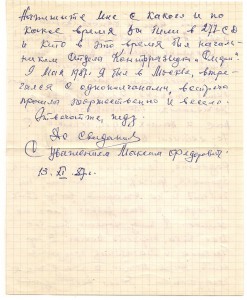 Напишите мне с какого и по
какое время Вы были в 277 СД
и кто в это время был началь-
ником отдела Контрразведки
9 Мая 1987. Я был в Москве, встре-
чался с однополчанами, встреча
прошла торжественно и весело.
Отвечайте, жду.
До свидания
С уважением Максим Федорович
13. XI